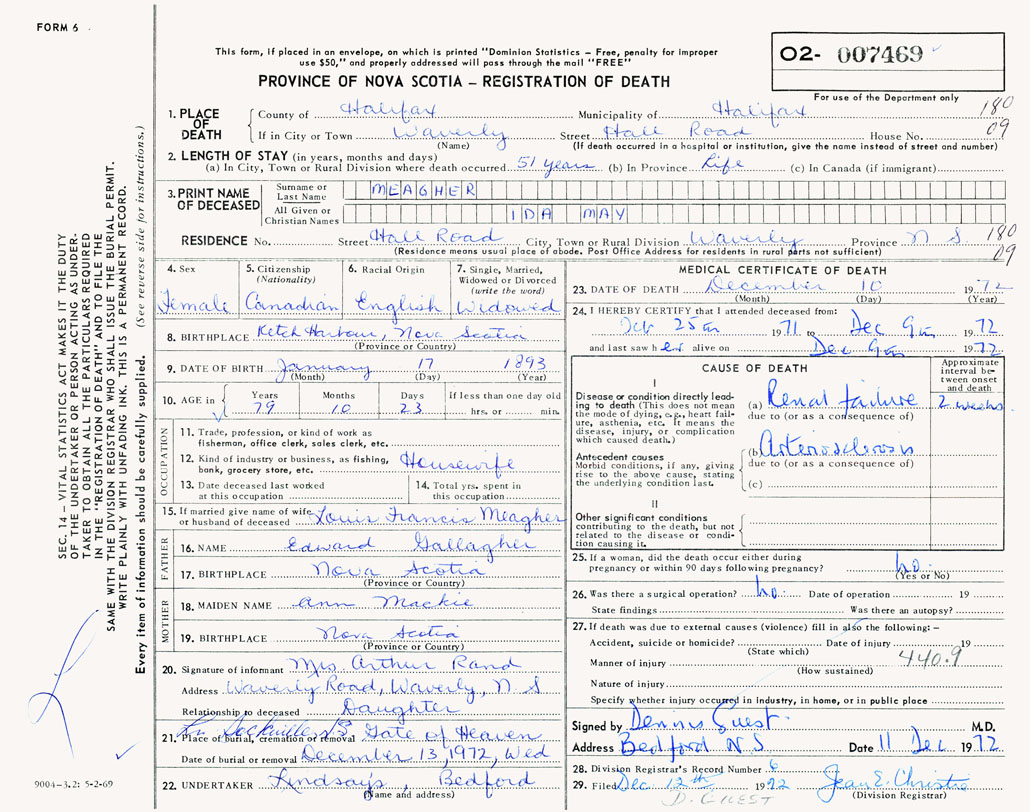 FORM 6
This form, if placed in an envelope, on which is printed "Dominion Statistics – Free, penalty for improper
use $50," and properly addressed will pass through the mail "FREE"
PROVINCE OF NOVA SCOTIA – REGISTRATION OF DEATH
O2- 007469
For use of the Department only
180
09
1. PLACE OF DEATH
County of Halifax Municipality of Halifax
If in City or Town Waverly Street Hall Road House No.
(Name) (If death occurred in a hospital or institution, give the name instead of street and number)
2. LENGTH OF STAY (in years, months and days)
(a) In City, Town or Rural Division where death occurred 51 years (b) In Province Life (c) In Canada (if immigrant)
3. PRINT NAME OF DECEASED
Surname or Last Name MEAGHER
All Given or Christian Names IDA MAY
RESIDENCE No. Street Hall Road City, Town or Rural Division Waverly Province N S 180
(Residence means usual place of abode. Post Office Address for residents in rural parts not sufficient) 09
4. Sex Female
5. Citizenship (Nationality) Canadian
6. Racial Origin English
7. Single, Married, Widowed or Divorced (write the word) Widowed
8. BIRTHPLACE Ketch Harbour, Nova Scotia
(Province or Country)
9. DATE OF BIRTH January 17 1893
(Month) (Day) (Year)
10. AGE in Years 79 Months 10 Days 23 If less than one day old hrs. or min.
OCCUPATION
11. Trade, profession, or kind of work as
fisherman, office clerk, sales clerk, etc.
12. Kind of industry or business, as fishing,
bank, grocery store, etc. Housewife
13. Date deceased last worked
at this occupation
14. Total yrs. spent in
this occupation
15. If married give name of wife
or husband of deceased Louis Francis Meagher
FATHER
16. NAME Edward Gallagher
17. BIRTHPLACE Nova Scotia
(Province or Country)
MOTHER
18. MAIDEN NAME Ann Mackie
19. BIRTHPLACE Nova Scotia
(Province or Country)
20. Signature of informant Mrs Arthur Rand
Address Waverly Road, Waverly, N S
Relationship to deceased Daughter
Sackville NS
21. Place of burial, cremation or removal Gate of Heaven
Date of burial or removal December 13, 1972, Wed
22. UNDERTAKER Lindsay's, Bedford
(Name and address)
MEDICAL CERTIFICATE OF DEATH
23. DATE OF DEATH December 10 1972
(Month) (Day) (Year)
24. I HEREBY CERTIFY that I attended deceased from:
25 1971 to Dec 9 1972
and last saw her alive on Dec 9 1972
CAUSE OF DEATH
Approximate interval between onset and death
I
Disease or condition directly leading
to death (This does not mean
the mode of dying, e.g., heart failure,
asthenia, etc. It means the
disease, injury, or complication
which caused death.)
(a) Renal failure 2 weeks
due to (or as a consequence of)
Antecedent causes
Morbid conditions, if any, giving
rise to the above cause, stating
the underlying condition last.
(b) Arteriosclerosis
due to (or as a consequence of)
(c)
II
Other significant conditions
contributing to the death, but not
related to the disease or condition
causing it.
25. If a woman, did the death occur either during
pregnancy or within 90 days following pregnancy? no
(Yes or No)
26. Was there a surgical operation? no Date of operation 19
State findings Was there an autopsy?
27. If death was due to external causes (violence) fill in also the following: –
Accident, suicide or homicide? Date of injury 19
(State which)
Manner of injury 440.9
(How sustained)
Nature of injury
Specify whether injury occurred in industry, in home, or in public place
Signed by Dennis Guest M.D.
Address Bedford N S Date 11 Dec 1972
28. Division Registrar's Record Number 6
29. Filed Dec 12th 1972 Jean E. Christie
D. GUEST (Division Registrar)
SEC. 14 – VITAL STATISTICS ACT MAKES IT THE DUTY
OF THE UNDERTAKER OR PERSON ACTING AS UNDERTAKER
TO OBTAIN ALL THE PARTICULARS REQUIRED
IN THE "REGISTRATION OF DEATH" AND TO FILE THE
SAME WITH THE DIVISION REGISTRAR WHO SHALL ISSUE THE BURIAL PERMIT.
WRITE PLAINLY WITH UNFADING INK. THIS IS A PERMANENT RECORD.
Every item of information should be carefully supplied. (See reverse side for instructions.)
9004-3.2: 5-2-69